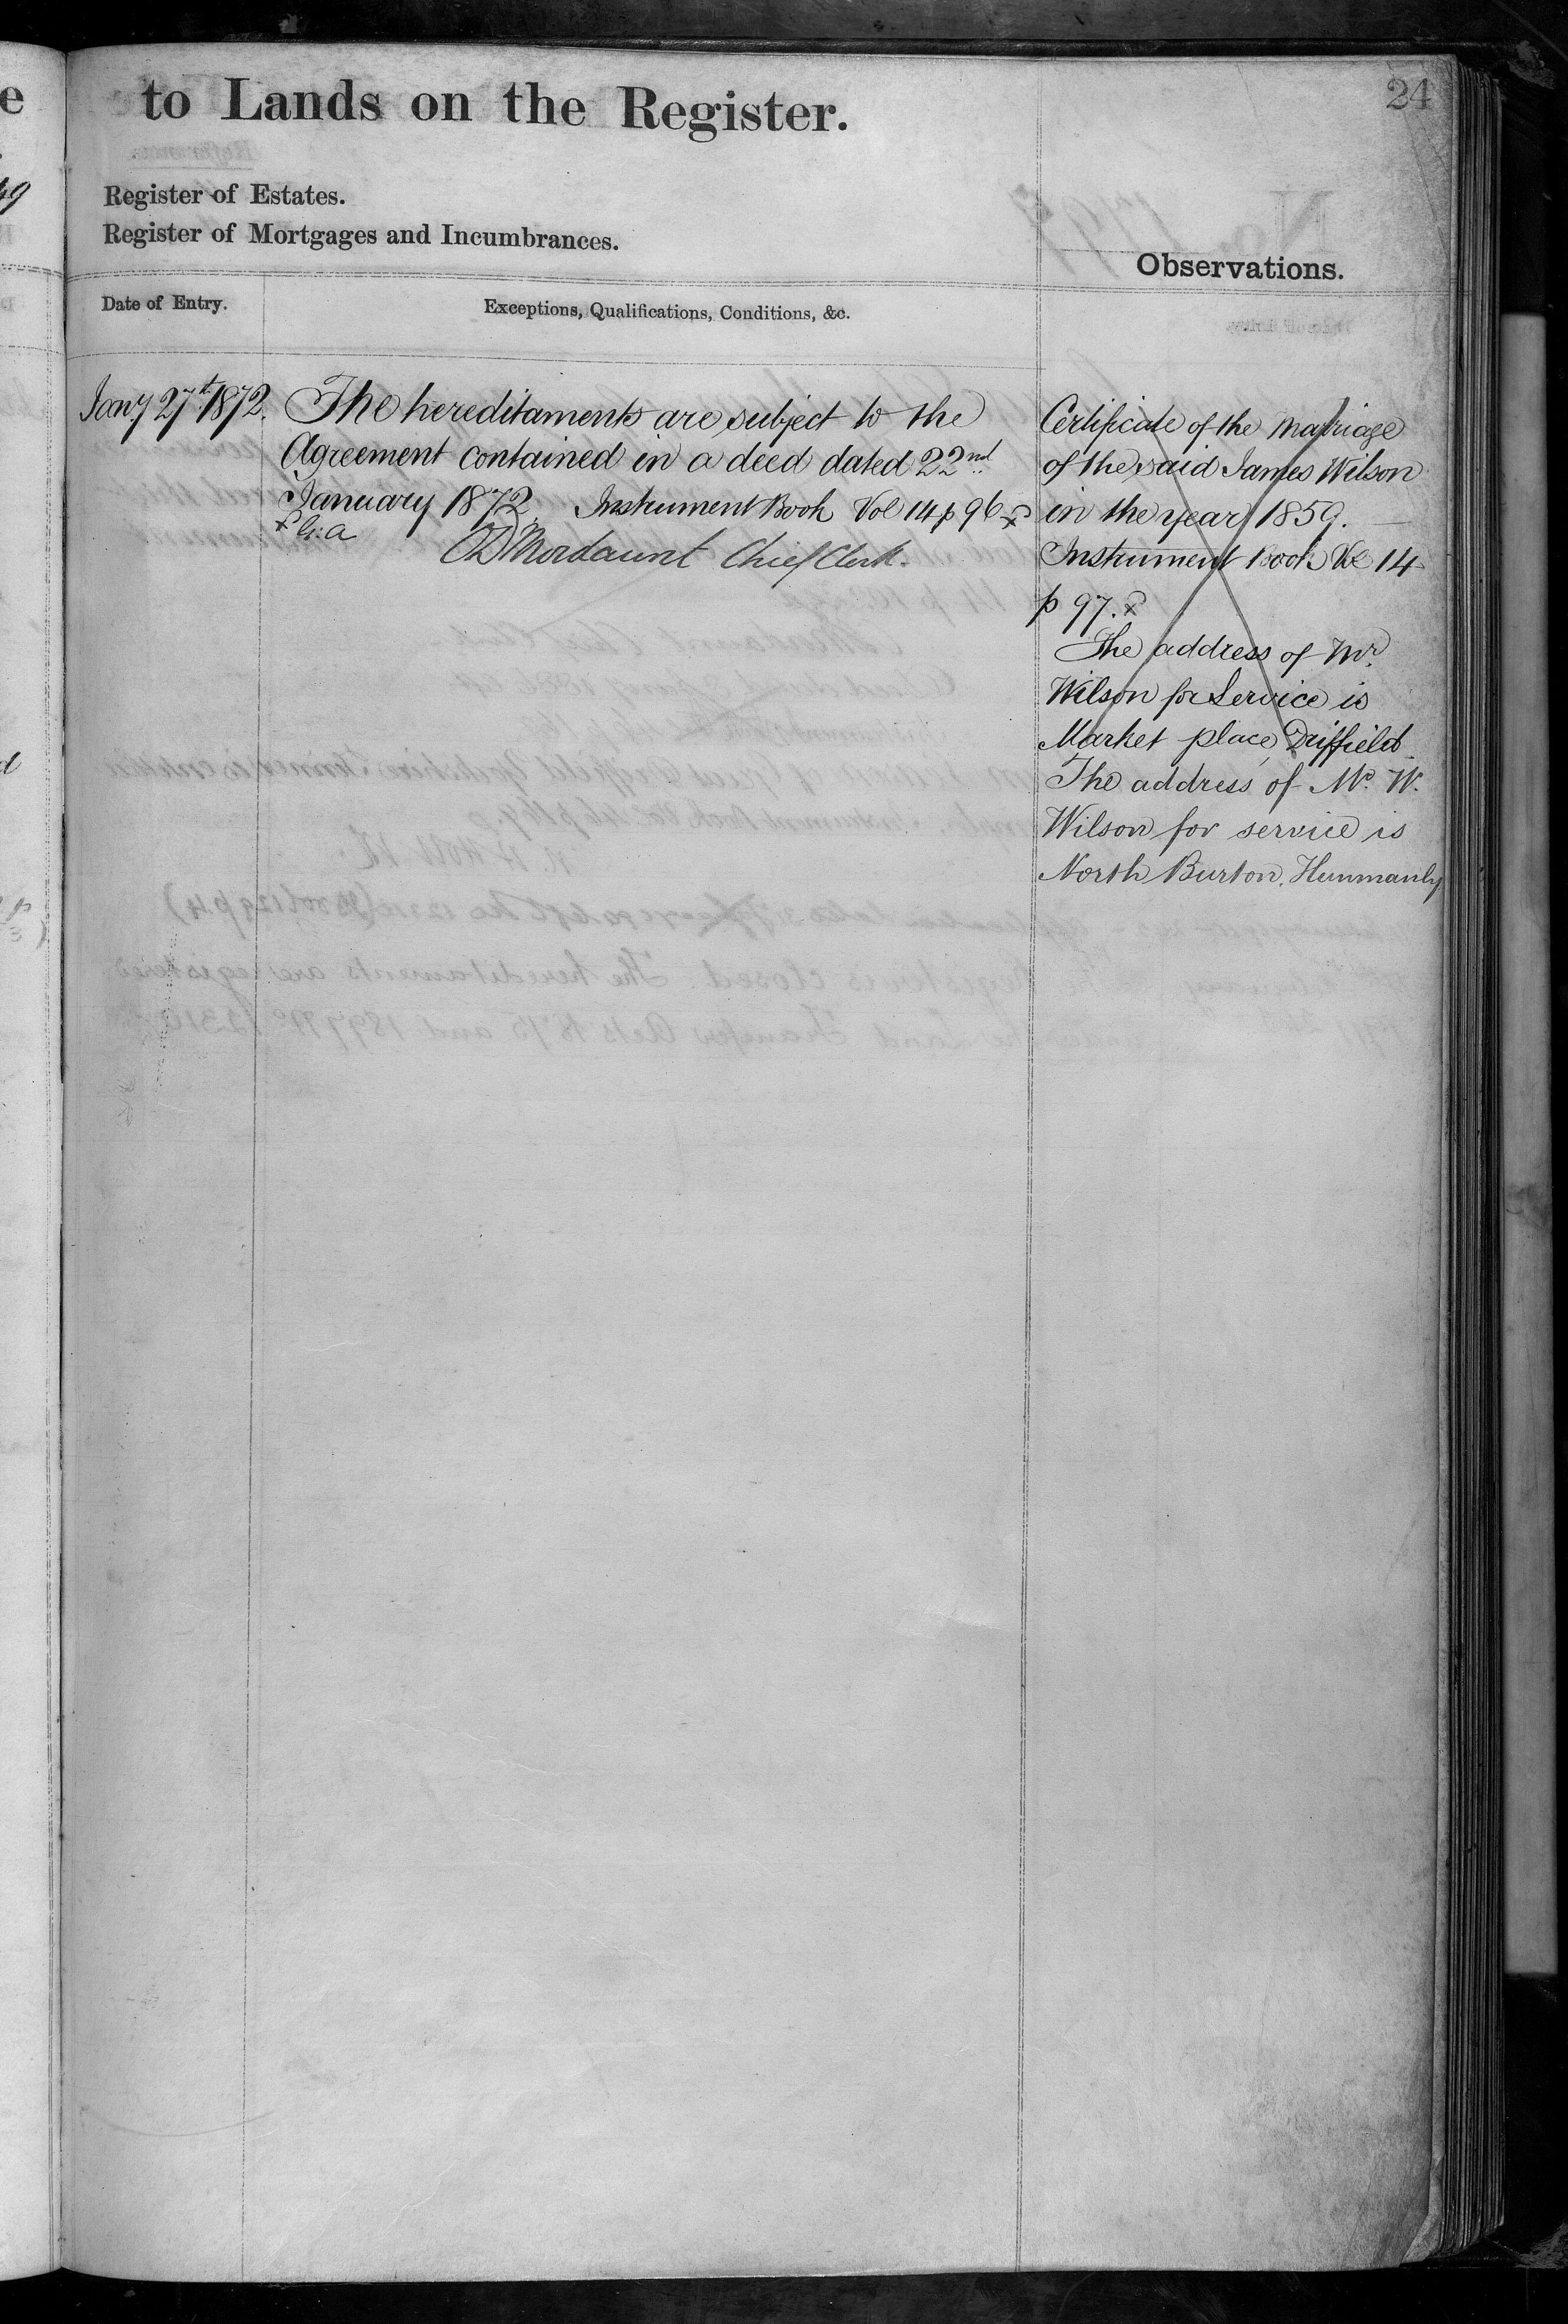 24
to Lands on the Register.
Register of Estates.
Register of Mortgages and Incumbrances.
Observations.
Date of Entry.
Exceptions, Qualifications, Conditions, &c.
Jany 27th 1872. The hereditaments are subject to the
Agreement contained in a deed dated 22nd
January 1872. Instrument Book Vol 14 p 96
Mordaunt Chief Clerk.
Certificate of the Marriage
of the said James Wilson
in the year 1859.
Instrument Book Vol 14
p 97.
The address of Mr.
Wilson for Service is
Market place, Driffield
The address of Mr. W.
Wilson for service is
North Burton, Hunmanby